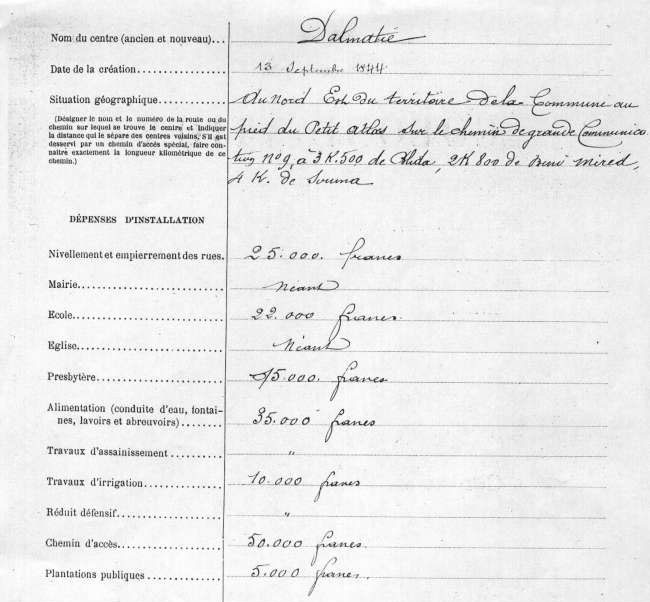 Nom du centre (ancien et nouveau)... Dalmatie
Date de la création................ 13 Septembre 1844
Situation géographique............. au nord Est du territoire de la Commune au
(Désigner le nom et le numéro de la route ou du
chemin sur lequel se trouve le centre et indiquer
la distance qui le sépare des centres voisins, S'il est
desservi par un chemin d'accès spécial, faire con-
naître exactement la longueur kilométrique de ce
chemin.)
pied du Petit atlas sur le chemin de grande Communica
tion No 9, à 3K.500 de Blida, 2K 800 de Beni mired,
4 K. de Souma
DÉPENSES D'INSTALLATION
Nivellement et empierrement des rues. 25.000. francs
Mairie.......................... Néant
Ecole........................... 22.000 francs.
Eglise.......................... Néant
Presbytère...................... 15.000. francs
Alimentation (conduite d'eau, fontai-
nes, lavoirs et abreuvoirs)........ 35.000 francs
Travaux d'assainissement.......... "
Travaux d'irrigation.............. 10.000 francs
Réduit défensif................... "
Chemin d'accès.................... 50.000 francs.
Plantations publiques............. 5.000 francs.